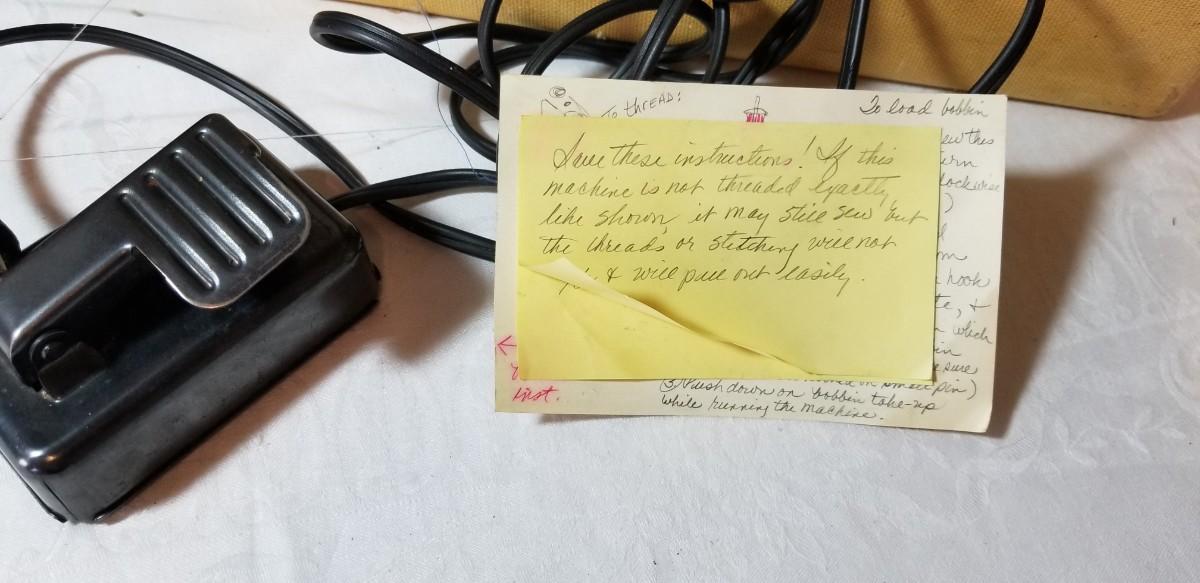 To thread:
To load bobbin
Save these instructions! If this
machine is not threaded exactly
like shown, it may still sew but
the threads or stitching will not
& will pull out easily.
ew this
urn
lockwise
)
m
hook
te, &
which
in
e sure
on small pin)
③ Push down on bobbin take-up
while running the machine.
first.